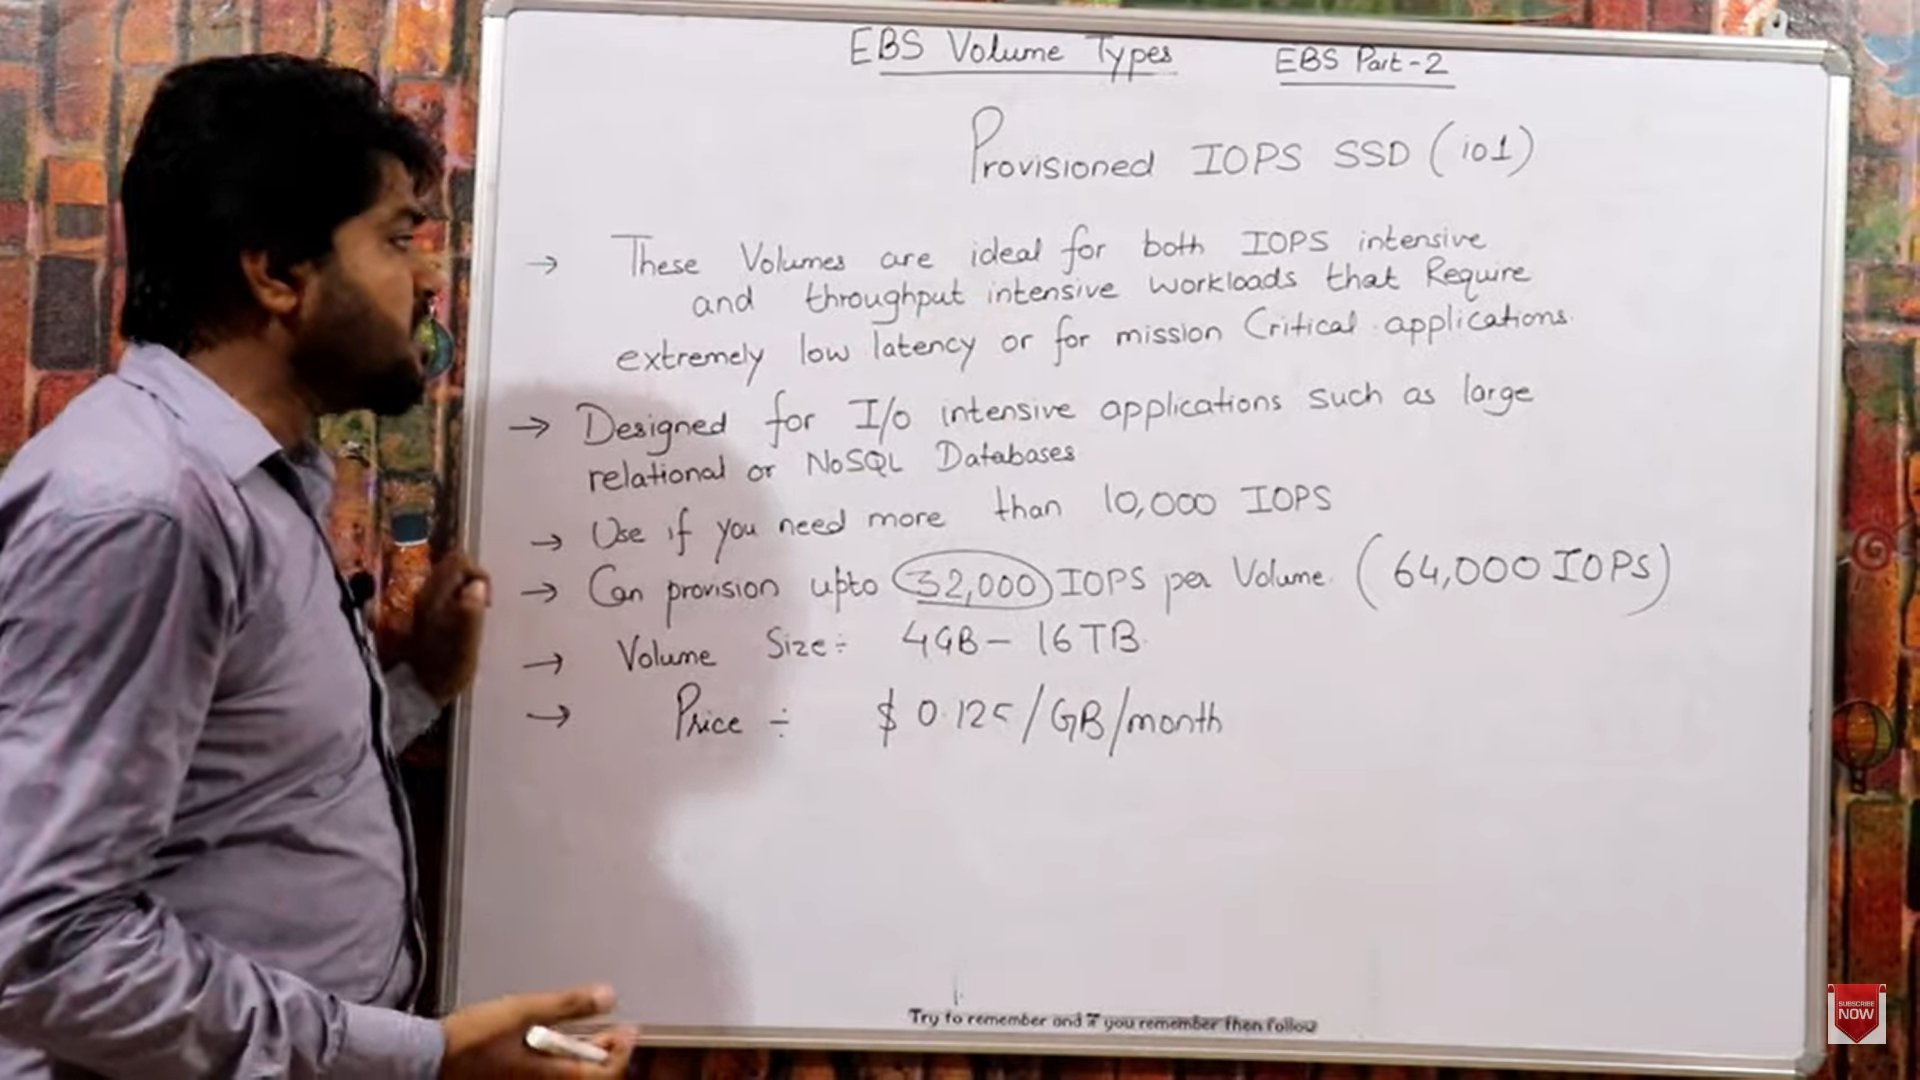 EBS Volume Types EBS Part-2
Provisioned IOPS SSD (io1)
→ These Volumes are ideal for both IOPS intensive
and throughput intensive workloads that Require
extremely low latency or for mission Critical applications.
→ Designed for I/o intensive applications such as large
relational or NoSQL Databases
→ Use if you need more than 10,000 IOPS
→ Can provision upto 32,000 IOPS per Volume. (64,000 IOPS)
→ Volume Size÷ 4GB - 16TB.
→ Price ÷ $ 0.125/GB/month
Try to remember and if you remember then follow
SUBSCRIBE
NOW